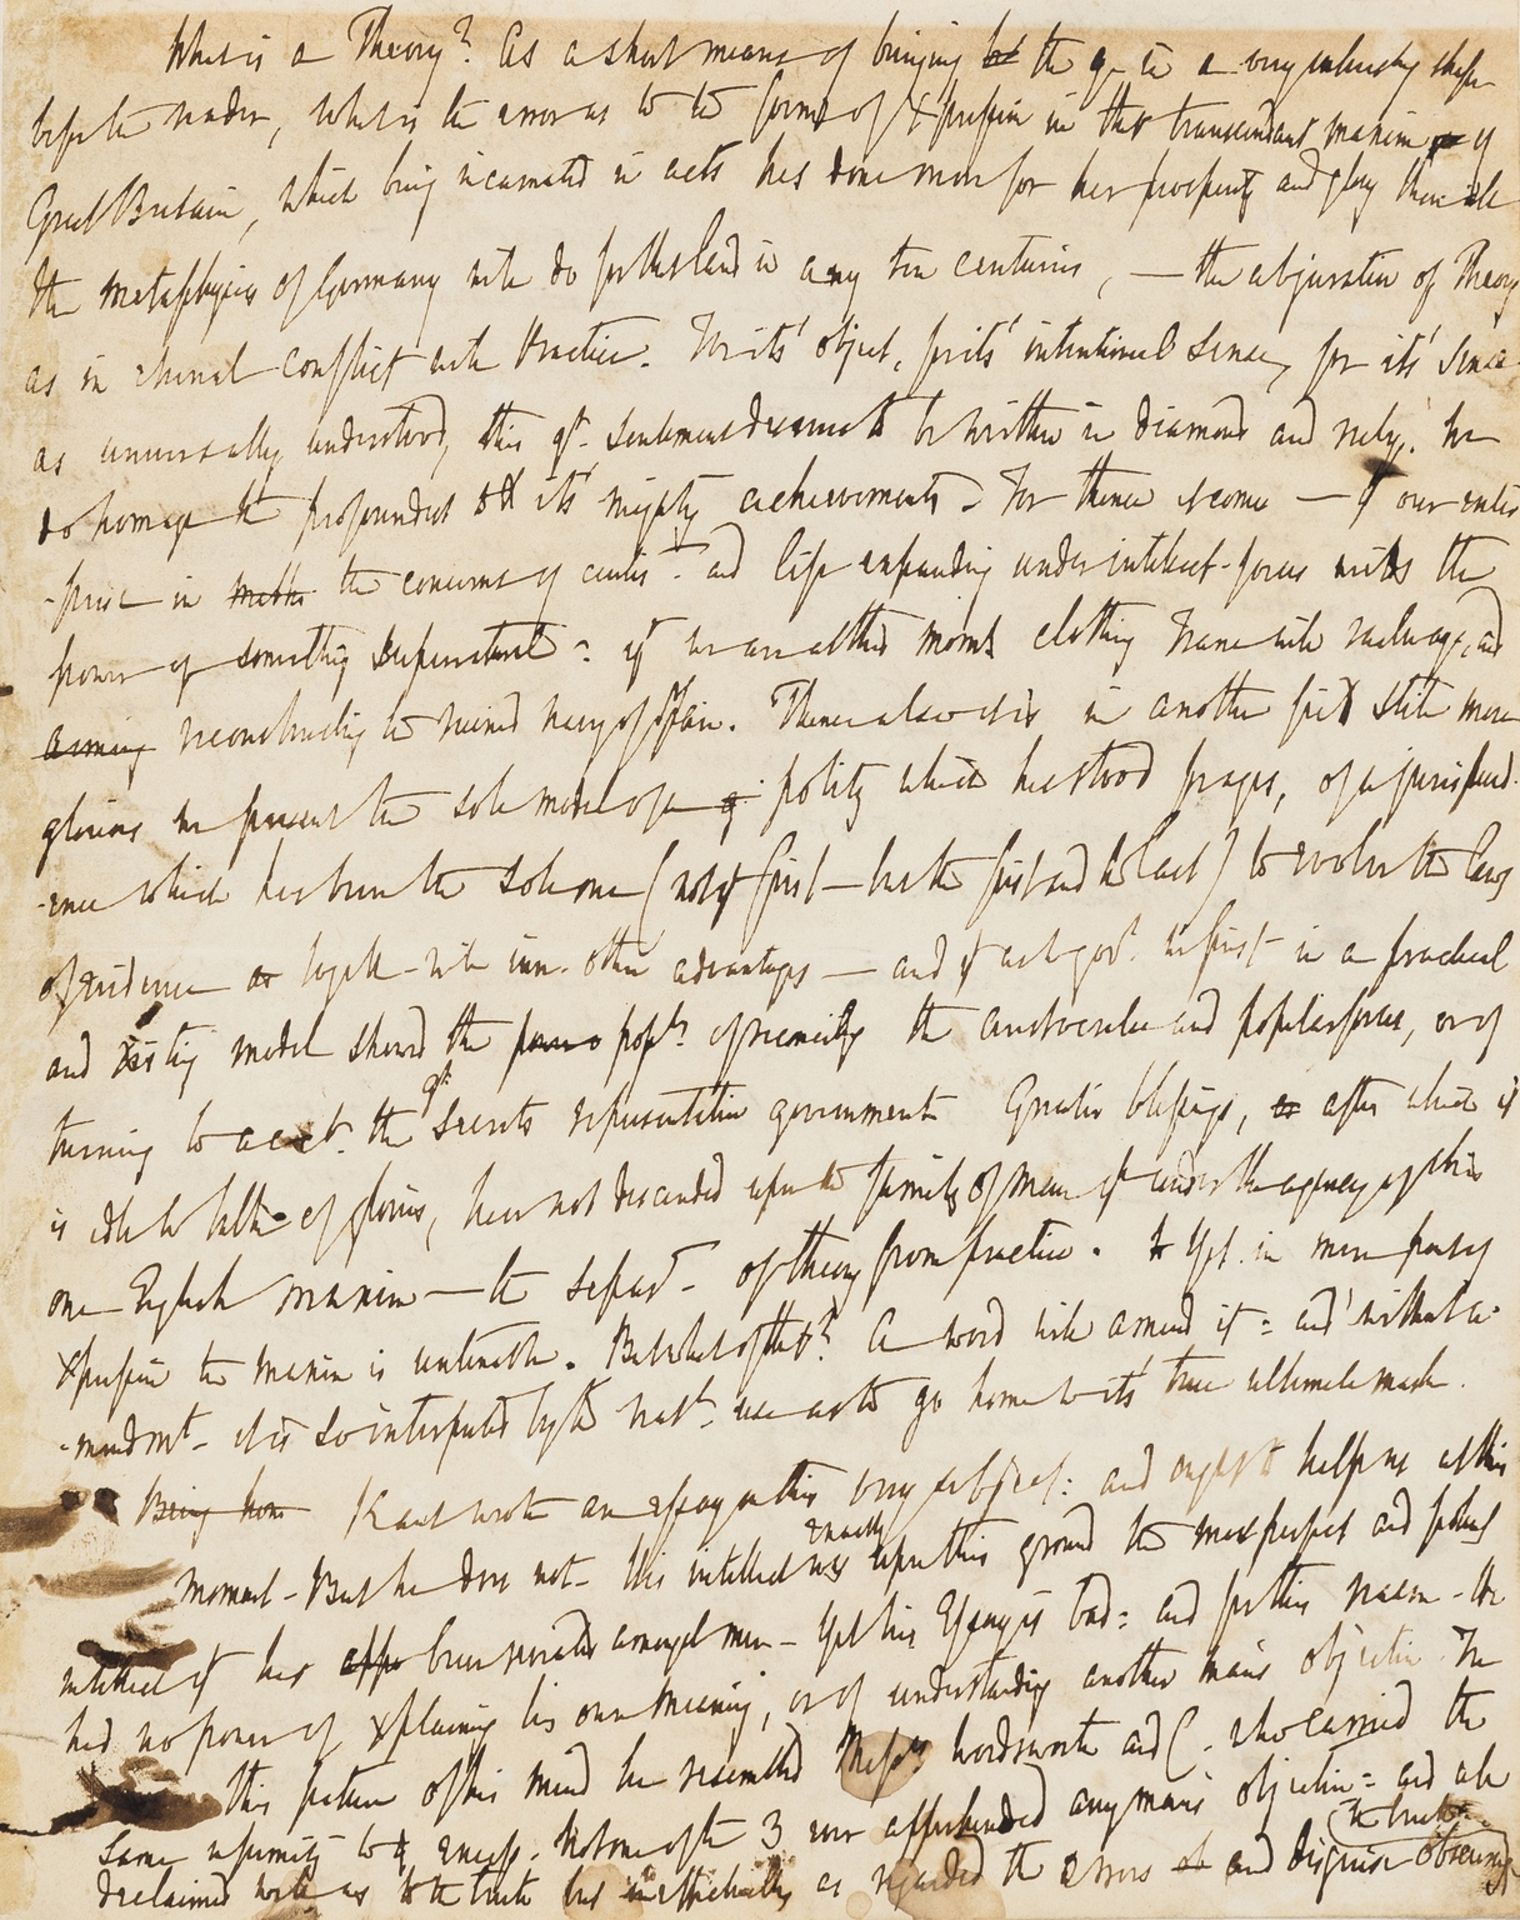 What is a Theory? As a short means of bringing the qn in a very interesting shape
before the reader, what is the error as to the form of Xpression in that transcendant maxim of
Great Britain, which being incarnated in acts has done more for her prosperity and glory than all
the metaphysics of Germany will do for that land in any ten centuries, — the abjuration of Theory
as in eternal conflict with Practice. For its' object, for its' intentional sense, for its' sense
as universally understood, this gt. sentiment deserves to be written in diamond and ruby. We
do homage the profoundest to its' mighty achievements - For thence it comes — yt our enter
-prise in matters the concerns of and life expanding under intellect-forces with the
power of something supernatural - : yt we are at this momt. clothing France with railways, and
arming reconstructing the ruined navy of Spain. Thence also it is in another field still more
glorious we present the sole model of a polity which has stood for ages, of a jurisprud-
-ence which has been the sole one (not yt first — but the first and the last) to evolve the laws
of evidence together with inn. other advantages — and yt at first in a practical
and existing model showed the popr. of reconciling the aristocratic and popular forces, or of
turning to acct. the gt. secrets representative government Greater blessings, after which it
is idle to talk of glories, have not descended upon the family of man yn under the agency of this
one English maxim — the separn. of theory from practice. Yet in mere form of
Xpression the maxim is untenable. But what of that? A word will amend it : and without a-
-mendmt. - it is so interpreted by the natl. use as to go home to its' true ultimate mark.
Being how Kant wrote an essay on this very subject : and ought to help us at this
moment - But he does not - His intellect was exactly upon this ground the most perfect and
intellect yt has appe been amongst men - Yet his Essay is bad : and for this reason - He
had no power of Xplaining his own meaning, or of understanding another man's objection. In
this feature of his mind he resembled Messrs. Wordsworth and C. who carried the
same infirmity to excess. Not one of the 3 ever apprehended any man's objection : and all
declaimed well as to the truth but ineffectually as regarded the errors and disguise obscuring
the truth